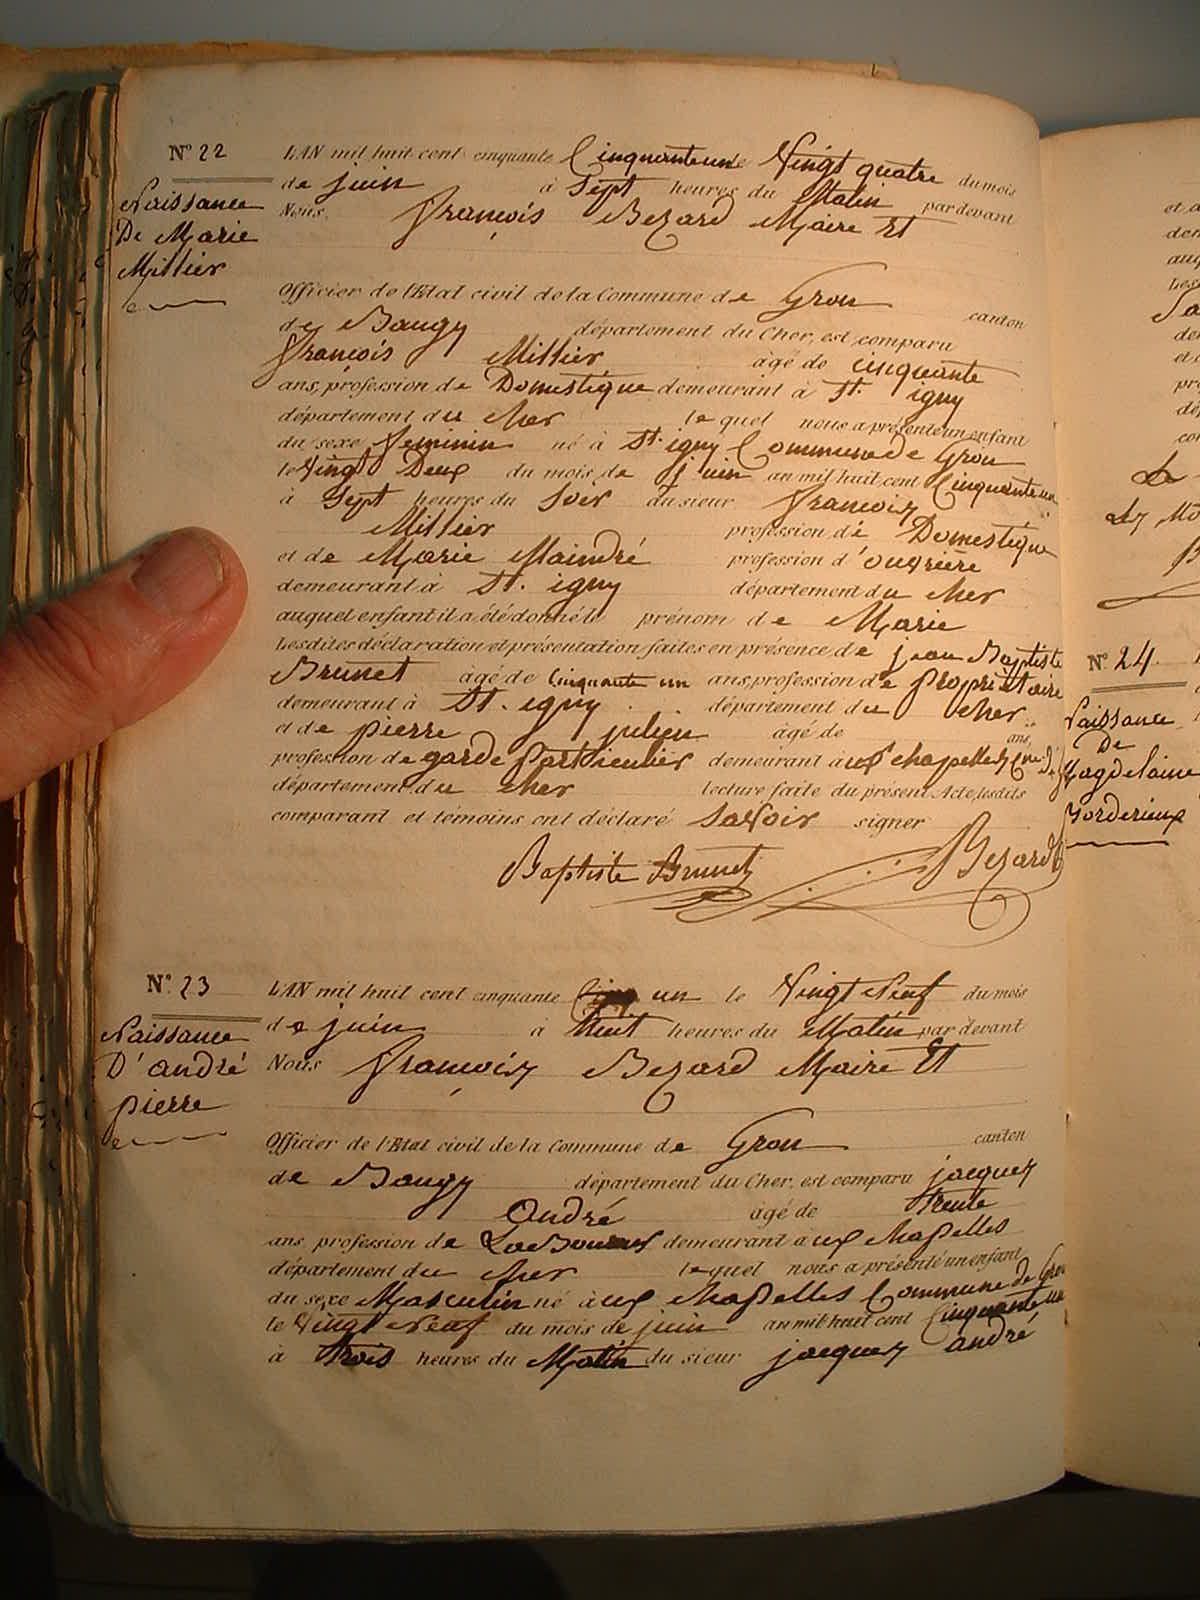 N° 22
Naissance
De Marie
Millier
L'AN mil huit cent cinquante Cinquante un le Vingt quatre du mois
de juin à Sept heures du Matin par devant
Nous François Bezard Maire Et
Officier de l'Etat civil de la Commune de Gron canton
de Baugy département du Cher, est comparu
François Millier âgé de cinquante
ans, profession de Domestique demeurant à St. igny
département du cher lequel nous a présenté un enfant
du sexe feminin né à St. igny Commune de Gron
le Vingt Deux du mois de juin an mil huit cent Cinquante un
à Sept heures du Soir du sieur François
Millier profession de Domestique
et de Marie Maindré profession d'ouvrière
demeurant à St. igny département du cher
auquel enfant il a été donné le prénom de Marie
Lesdites déclaration et présentation faites en présence de jean Baptiste
Brunet âgé de Cinquante un ans, profession de Propriétaire
demeurant à St. igny département du cher
et de pierre julien âgé de ans,
profession de garde Particulier demeurant à ux chapelles
département du cher lecture faite du présent Acte, lesdits
comparant et témoins ont déclaré Savoir signer
Baptiste Brunet Bezard
N° 23
Naissance
D'andré
pierre
L'AN mil huit cent cinquante un le Vingt Neuf du mois
de juin à huit heures du Matin par devant
Nous François Bezard Maire Et
Officier de l'Etat civil de la Commune de Gron canton
de Baugy département du Cher, est comparu jacques
André âgé de trente
ans profession de demeurant a ux chapelles
département du cher lequel nous a présenté un enfant
du sexe Masculin né à ux chapelles Commune de Gron
le Vingt Neuf du mois de juin an mil huit cent Cinquante un
à trois heures du Matin du sieur jacques andré
N° 24
Naissance
De
Magdelaine